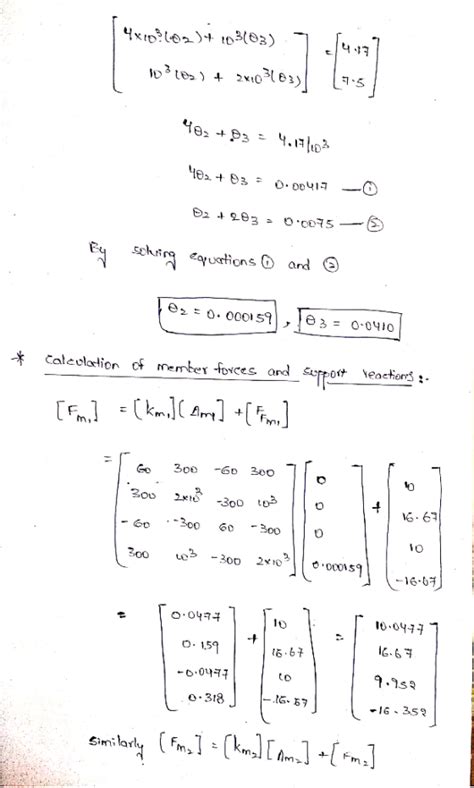 [ 4×10³(θ2) + 10³(θ3) ] = [ 4.17 ]
[ 10³(θ2) + 2×10³(θ3) ] [ 7.5 ]
4θ2 + θ3 = 4.17/10³
4θ2 + θ3 = 0.00417 — ①
θ2 + 2θ3 = 0.0075 — ②
By solving equations ① and ②
θ2 = 0.000159 , θ3 = 0.0410
* Calculation of member forces and support reactions :-
[Fm1] = [km1] [Δm1] + [FFm1]
= [ 60 300 -60 300 ] [ 0 ] + [ 10 ]
[ 300 2×10³ -300 10³ ] [ 0 ] [ 16.67 ]
[ -60 -300 60 -300 ] [ 0 ] [ 10 ]
[ 300 10³ -300 2×10³ ] [ 0.000159 ] [ -16.67 ]
= [ 0.0477 ] + [ 10 ] = [ 10.0477 ]
[ 0.159 ] [ 16.67 ] [ 16.67 ]
[ -0.0477 ] [ 10 ] [ 9.952 ]
[ 0.318 ] [ -16.67 ] [ -16.352 ]
similarly [Fm2] = [km2] [Δm2] + [Fm2]